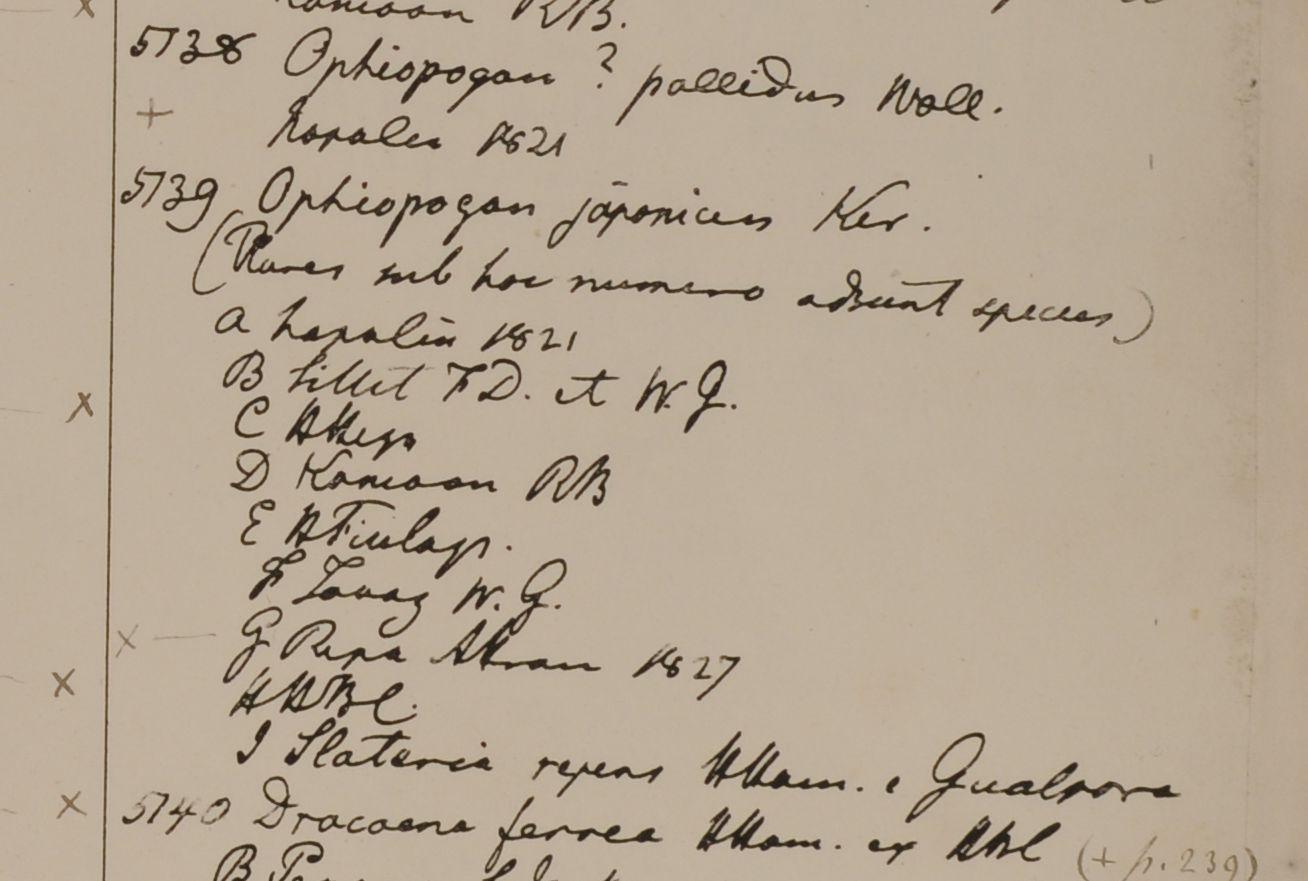 Kamaon RB.
5138 Ophiopogon ? pallidus Wall.
+ Napalia 1821
5139 Ophiopogon japonicus Ker.
(Plures sub hoc numero adsunt species)
a Napalia 1821
B Sillet F D. et W. G.
C HHeyn
D Kamaon RB
E HFinlays.
F Tavoy W. G.
G Ripa Attran 1827
H HBC.
I Slateria repens HHam. e Gualpara
5140 Dracaena ferrea HHam. ex HBC (+ p. 239)